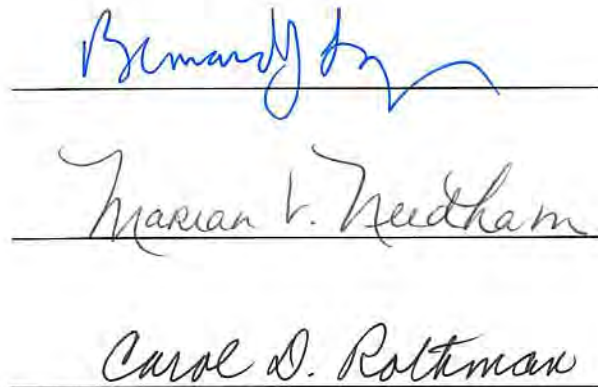 Bernard J.
Marian V. Needham
Carol D. Rothman